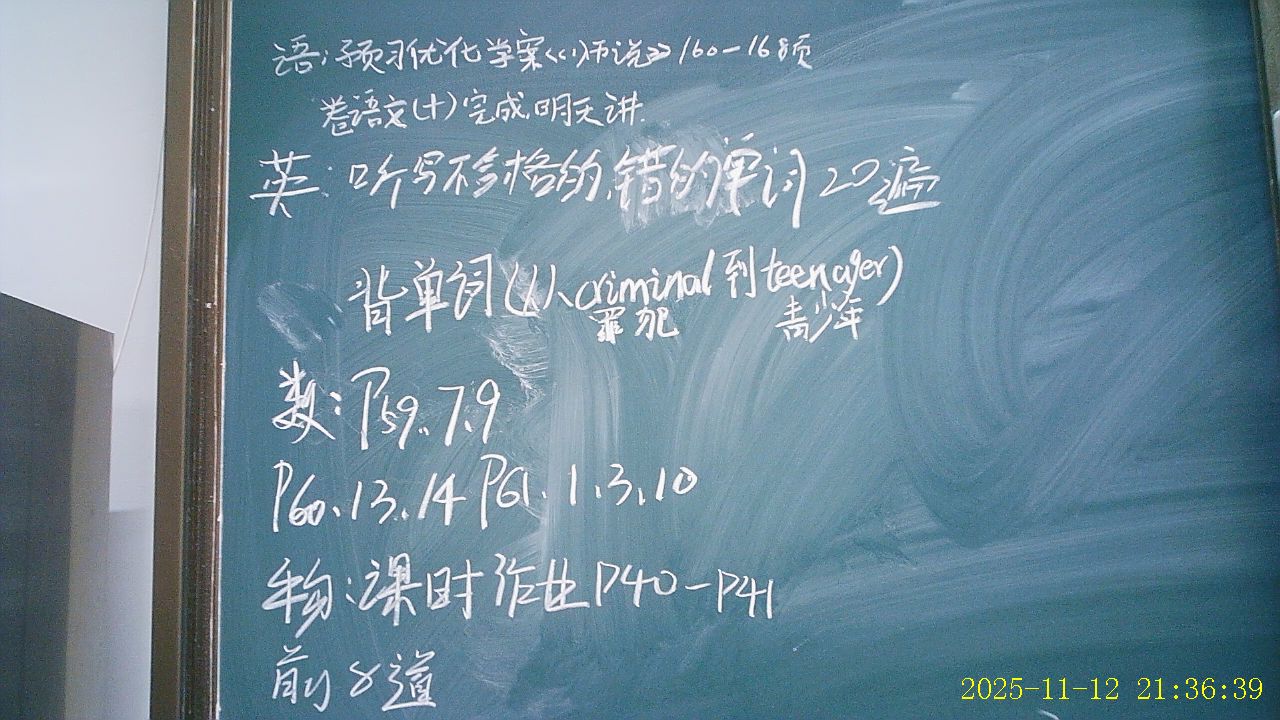 语:预习优化学案《(1)师说》160-168页
卷语文(十)完成,明天讲.
英:听写不合格的,错的单词20遍
背单词(1、criminal到teenager)
罪犯 青少年
数:P59.7.9
P60.13.14 P61.1.3.10
物:课时作业P40-P41
前8道
2025-11-12 21:36:39